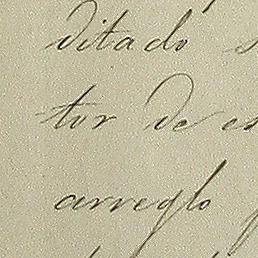 ditado s
tor de es
arreglo